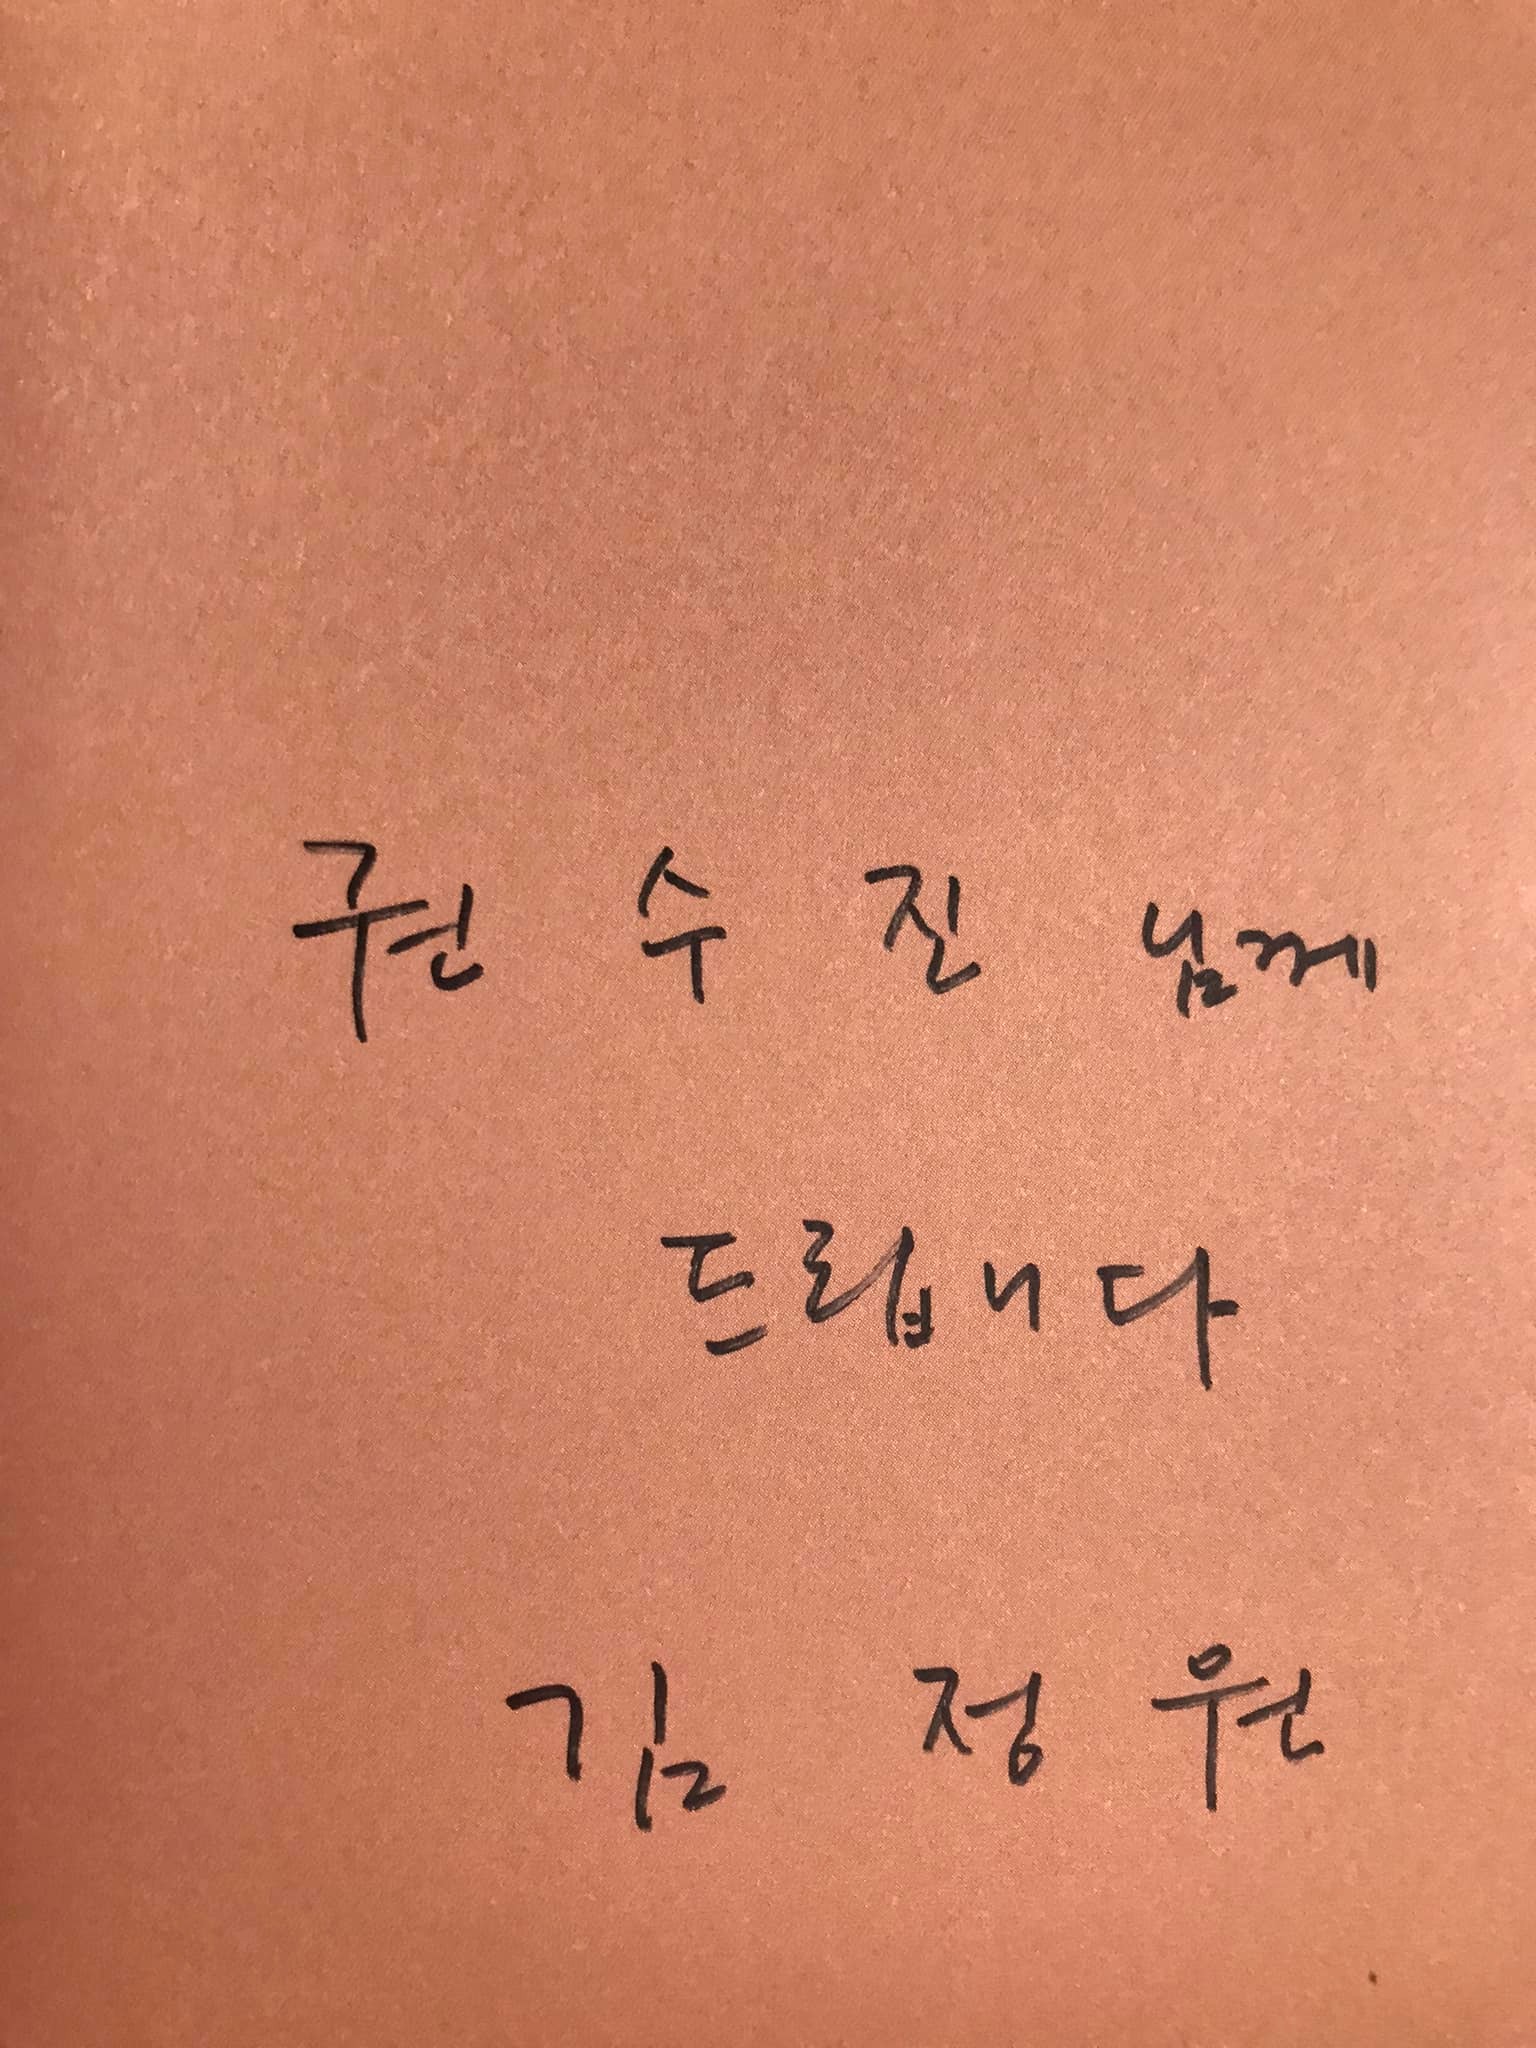 권수진 님께
드립니다
김 정원